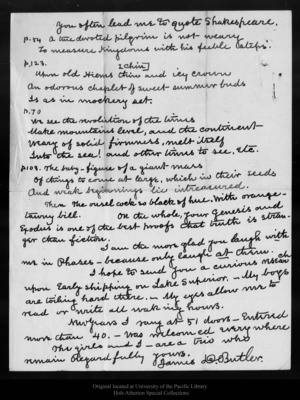 You often lead me to quote Shakespeare.
p. 54 A true devoted pilgrim is not weary
To measure Kingdoms with his feeble steps.
p. 123. [chin]
Upon old Hiems thin and icy crown
An odorous chaplet of sweet summer buds
Is as in mockery set.
p. 70
We see the revolution of the times
Make mountains level, and the continent
Weary of solid firmness, melt itself
Into the sea! and other times to see, etc.
p. 108. The baby-figure of a giant mass
Of things to come at large, which in their seeds
And weak beginnings lie intreasured.
Then The ousel cock so black of hue, With orange-
tawny bill. On the whole, your Genesis and
Exodus is one of the best proofs that truth is stran-
ger than fiction.
I am the more glad you laugh with
me in Phases - because only laugh at them.
I hope to send you a curious research
upon Early shipping on Lake Superior. - My boys
are toiling hard there. - My eyes allow me to
read or write all waking hours.
New Years I rang at 51 doors - Entered
more than 40. - Was welcomed everywhere
The girls and I - are a trio who
remain Regardfully yours.
James D. Butler.
Original located at University of the Pacific Library
Holt-Atherton Special Collections